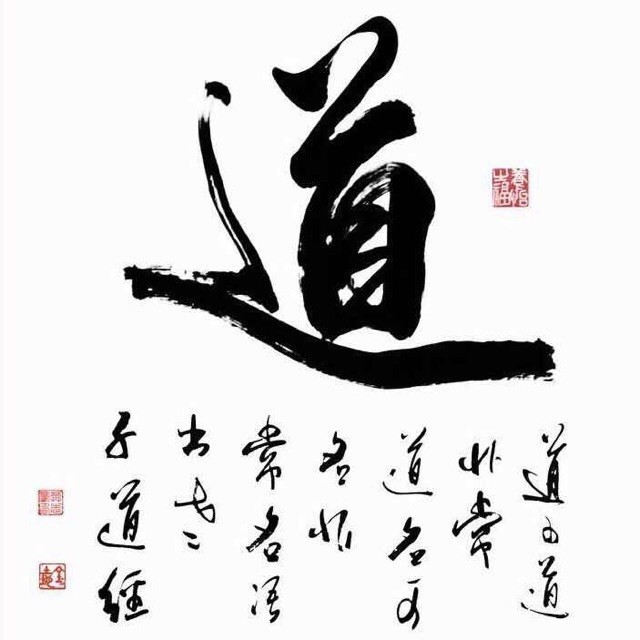 道
道可道
非常
道名可
名非
常名语
出老
子道经